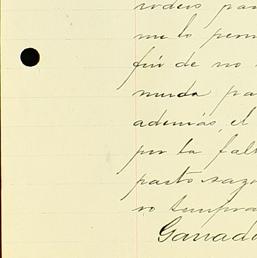 rodeos par
me lo perm
fin de no
muda pa
además, el
por la falt
pasto sazo
ro tempra
Ganado